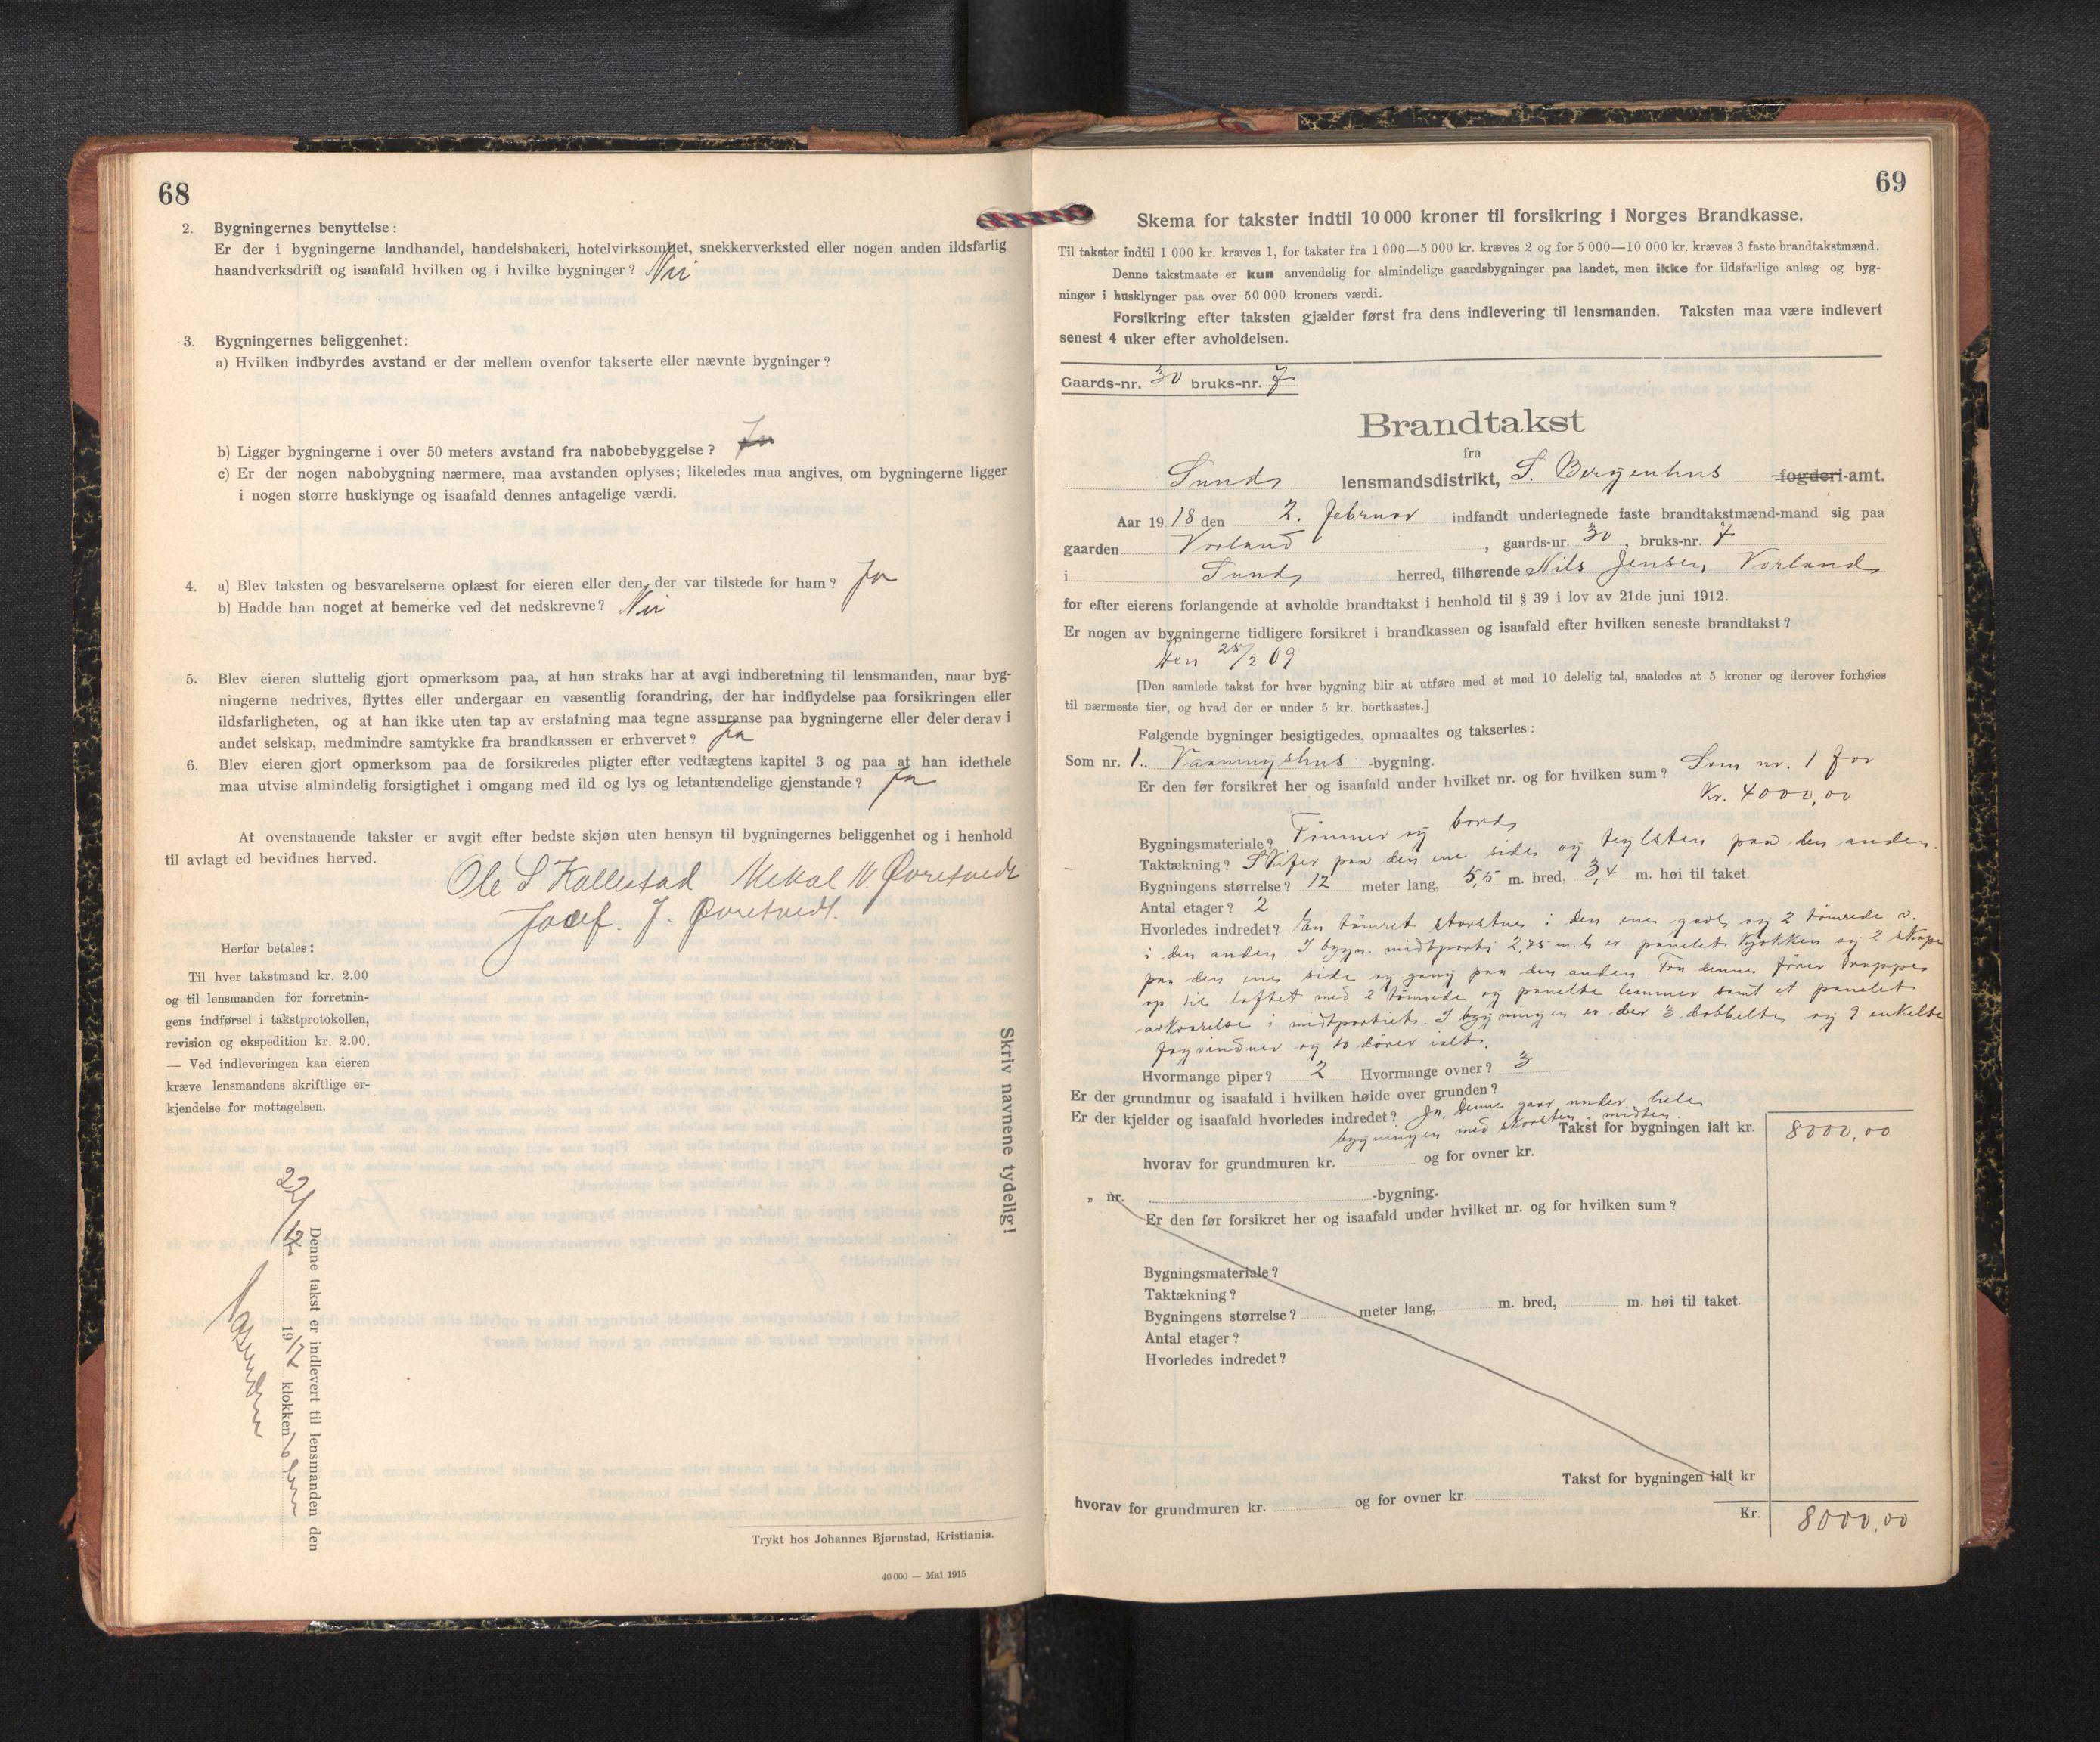 68
2. Bygningernes benyttelse:
Er der i bygningerne landhandel, handelsbakeri, hotelvirksomhet, snekkerverksted eller nogen anden ildsfarlig
haandverksdrift og isaafald hvilken og i hvilke bygninger? Nei
3. Bygningernes beliggenhet:
a) Hvilken indbyrdes avstand er der mellem ovenfor takserte eller nævnte bygninger?
b) Ligger bygningerne i over 50 meters avstand fra nabobebyggelse? Ja
c) Er der nogen nabobygning nærmere, maa avstanden oplyses; likeledes maa angives, om bygningerne ligger
i nogen større husklynge og isaafald dennes antagelige værdi.
4. a) Blev taksten og besvarelserne oplæst for eieren eller den, der var tilstede for ham? Ja
b) Hadde han noget at bemerke ved det nedskrevne? Nei
5. Blev eieren sluttelig gjort opmerksom paa, at han straks har at avgi indberetning til lensmanden, naar byg-
ningerne nedrives, flyttes eller undergaar en væsentlig forandring, der har indflydelse paa forsikringen eller
ildsfarligheten, og at han ikke uten tap av erstatning maa tegne assuranse paa bygningerne eller deler derav i
andet selskap, medmindre samtykke fra brandkassen er erhvervet? Ja
6. Blev eieren gjort opmerksom paa de forsikredes pligter efter vedtægtens kapitel 3 og paa at han idethele
maa utvise almindelig forsigtighet i omgang med ild og lys og letantændelige gjenstande? Ja
At ovenstaaende takster er avgit efter bedste skjøn uten hensyn til bygningernes beliggenhet og i henhold
til avlagt ed bevidnes herved.
Ole S Kallestad Mekal N. Øvretvedt
Josef. J. Øvretvedt.
Herfor betales:
Til hver takstmand kr. 2.00
og til lensmanden for forretnin-
gens indførsel i takstprotokollen,
revision og ekspedition kr. 2.00.
— Ved indleveringen kan eieren
kræve lensmandens skriftlige er-
kjendelse for mottagelsen.
Skriv navnene tydelig!
Denne takst er indlevert til lensmanden den
22/12 1917 klokken 10
Trykt hos Johannes Bjørnstad, Kristiania.
40 000 — Mai 1915
69
Skema for takster indtil 10 000 kroner til forsikring i Norges Brandkasse.
Til takster indtil 1 000 kr. kræves 1, for takster fra 1 000—5 000 kr. kræves 2 og for 5 000—10 000 kr. kræves 3 faste brandtakstmænd.
Denne takstmaate er kun anvendelig for almindelige gaardsbygninger paa landet, men ikke for ildsfarlige anlæg og byg-
ninger i husklynger paa over 50 000 kroners værdi.
Forsikring efter taksten gjælder først fra dens indlevering til lensmanden. Taksten maa være indlevert
senest 4 uker efter avholdelsen.
Gaards-nr. 30 bruks-nr. 7
Brandtakst
fra
Sunds lensmandsdistrikt, S. Bergenhus fogderi-amt.
Aar 1918 den 2. februar indfandt undertegnede faste brandtakstmænd-mand sig paa
gaarden Vorland, gaards-nr. 30, bruks-nr. 7
i Sunds herred, tilhørende Nils Jensen Vorland
for efter eierens forlangende at avholde brandtakst i henhold til § 39 i lov av 21de juni 1912.
Er nogen av bygningerne tidligere forsikret i brandkassen og isaafald efter hvilken seneste brandtakst?
den 25/2 09
[Den samlede takst for hver bygning blir at utføre med et med 10 delelig tal, saaledes at 5 kroner og derover forhøies
til nærmeste tier, og hvad der er under 5 kr. bortkastes.]
Følgende bygninger besigtigedes, opmaaltes og taksertes:
Som nr. 1. Vaaningshus -bygning.
Er den før forsikret her og isaafald under hvilket nr. og for hvilken sum? Som nr. 1 for
Kr. 4000,00
Bygningsmateriale? Tømmer og bords
Taktækning? Skifer paa den ene side og teglsten paa den anden.
Bygningens størrelse? 12 meter lang, 5,5 m. bred, 3,4 m. høi til taket.
Antal etager? 2
Hvorledes indredet? En tømret storstue i den ene gavl og 2 tømrede v.
i den anden. I bygn. midtparti 2,75 m. b er panelet kjøkken og 2 skape
paa den ene side og gang paa den anden. Fra denne fører trappe
op til loftet med 2 tømrede og panelte lemmer samt et panelet
arkværelse i midtpartiet. I bygningen er der 3 dobbelte og 9 enkelte
fagvinduer og 10 dører ialt.
Hvormange piper? 2 Hvormange ovner? 3
Er der grundmur og isaafald i hvilken høide over grunden?
Er der kjelder og isaafald hvorledes indredet? Ja, denne gaar under hele
bygningen med skorsten i midten.
Takst for bygningen ialt kr. 8000,00
hvorav for grundmuren kr. og for ovner kr.
„ nr. -bygning.
Er den før forsikret her og isaafald under hvilket nr. og for hvilken sum?
Bygningsmateriale?
Taktækning?
Bygningens størrelse? meter lang, m. bred, m. høi til taket.
Antal etager?
Hvorledes indredet?
Takst for bygningen ialt kr
hvorav for grundmuren kr. og for ovner kr.
Kr. 8000,00